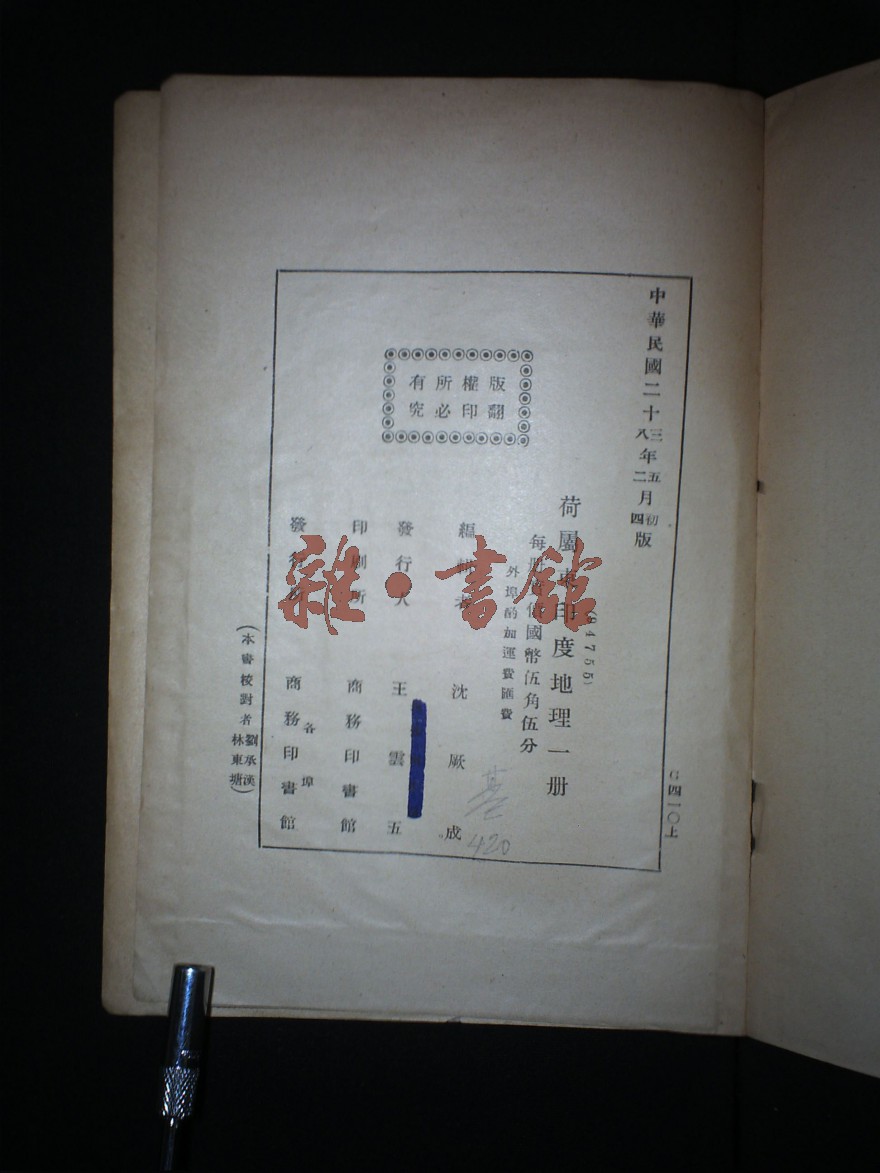 中華民國二十三八年五二月初四版
G四一〇上
版權所有
翻印必究
荷屬東印度地理一册
每册實價國幣伍角伍分
外埠酌加運費匯費
編輯者 沈厥成
420
發行人 王雲五
印刷所 商務印書館
發行所 各埠 商務印書館
(本書校對者劉承漢林東塘)
雜·書館